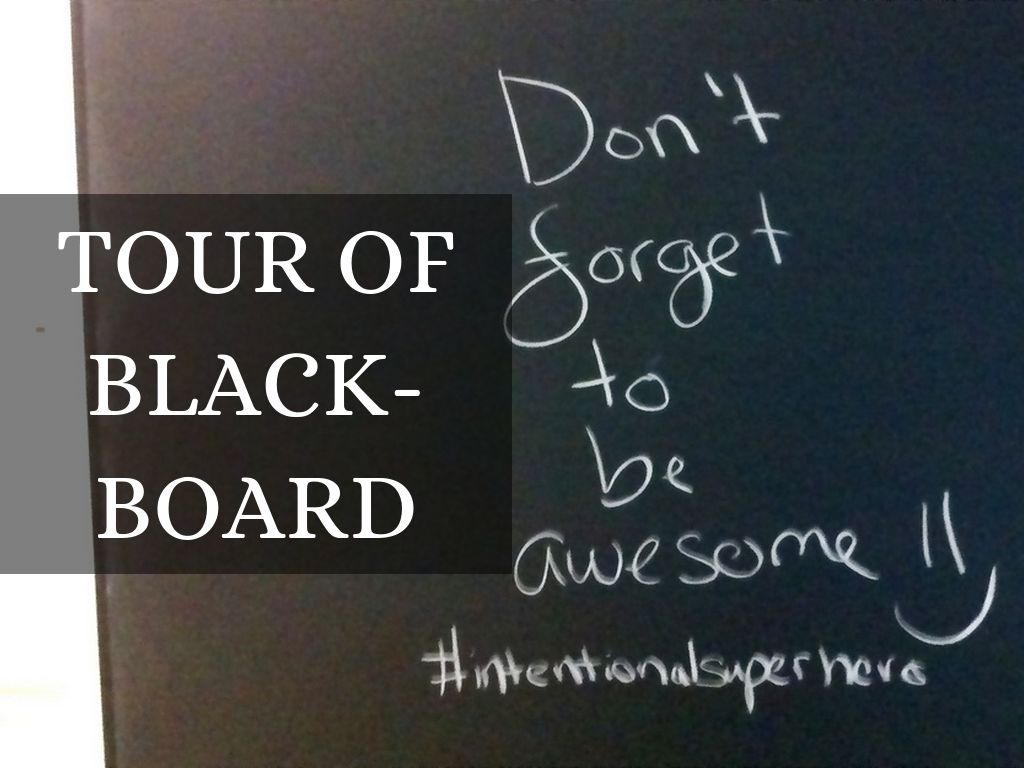 TOUR OF
BLACK-
BOARD
Don't
forget
to
be
awesome !!
#intentionalsuperhero